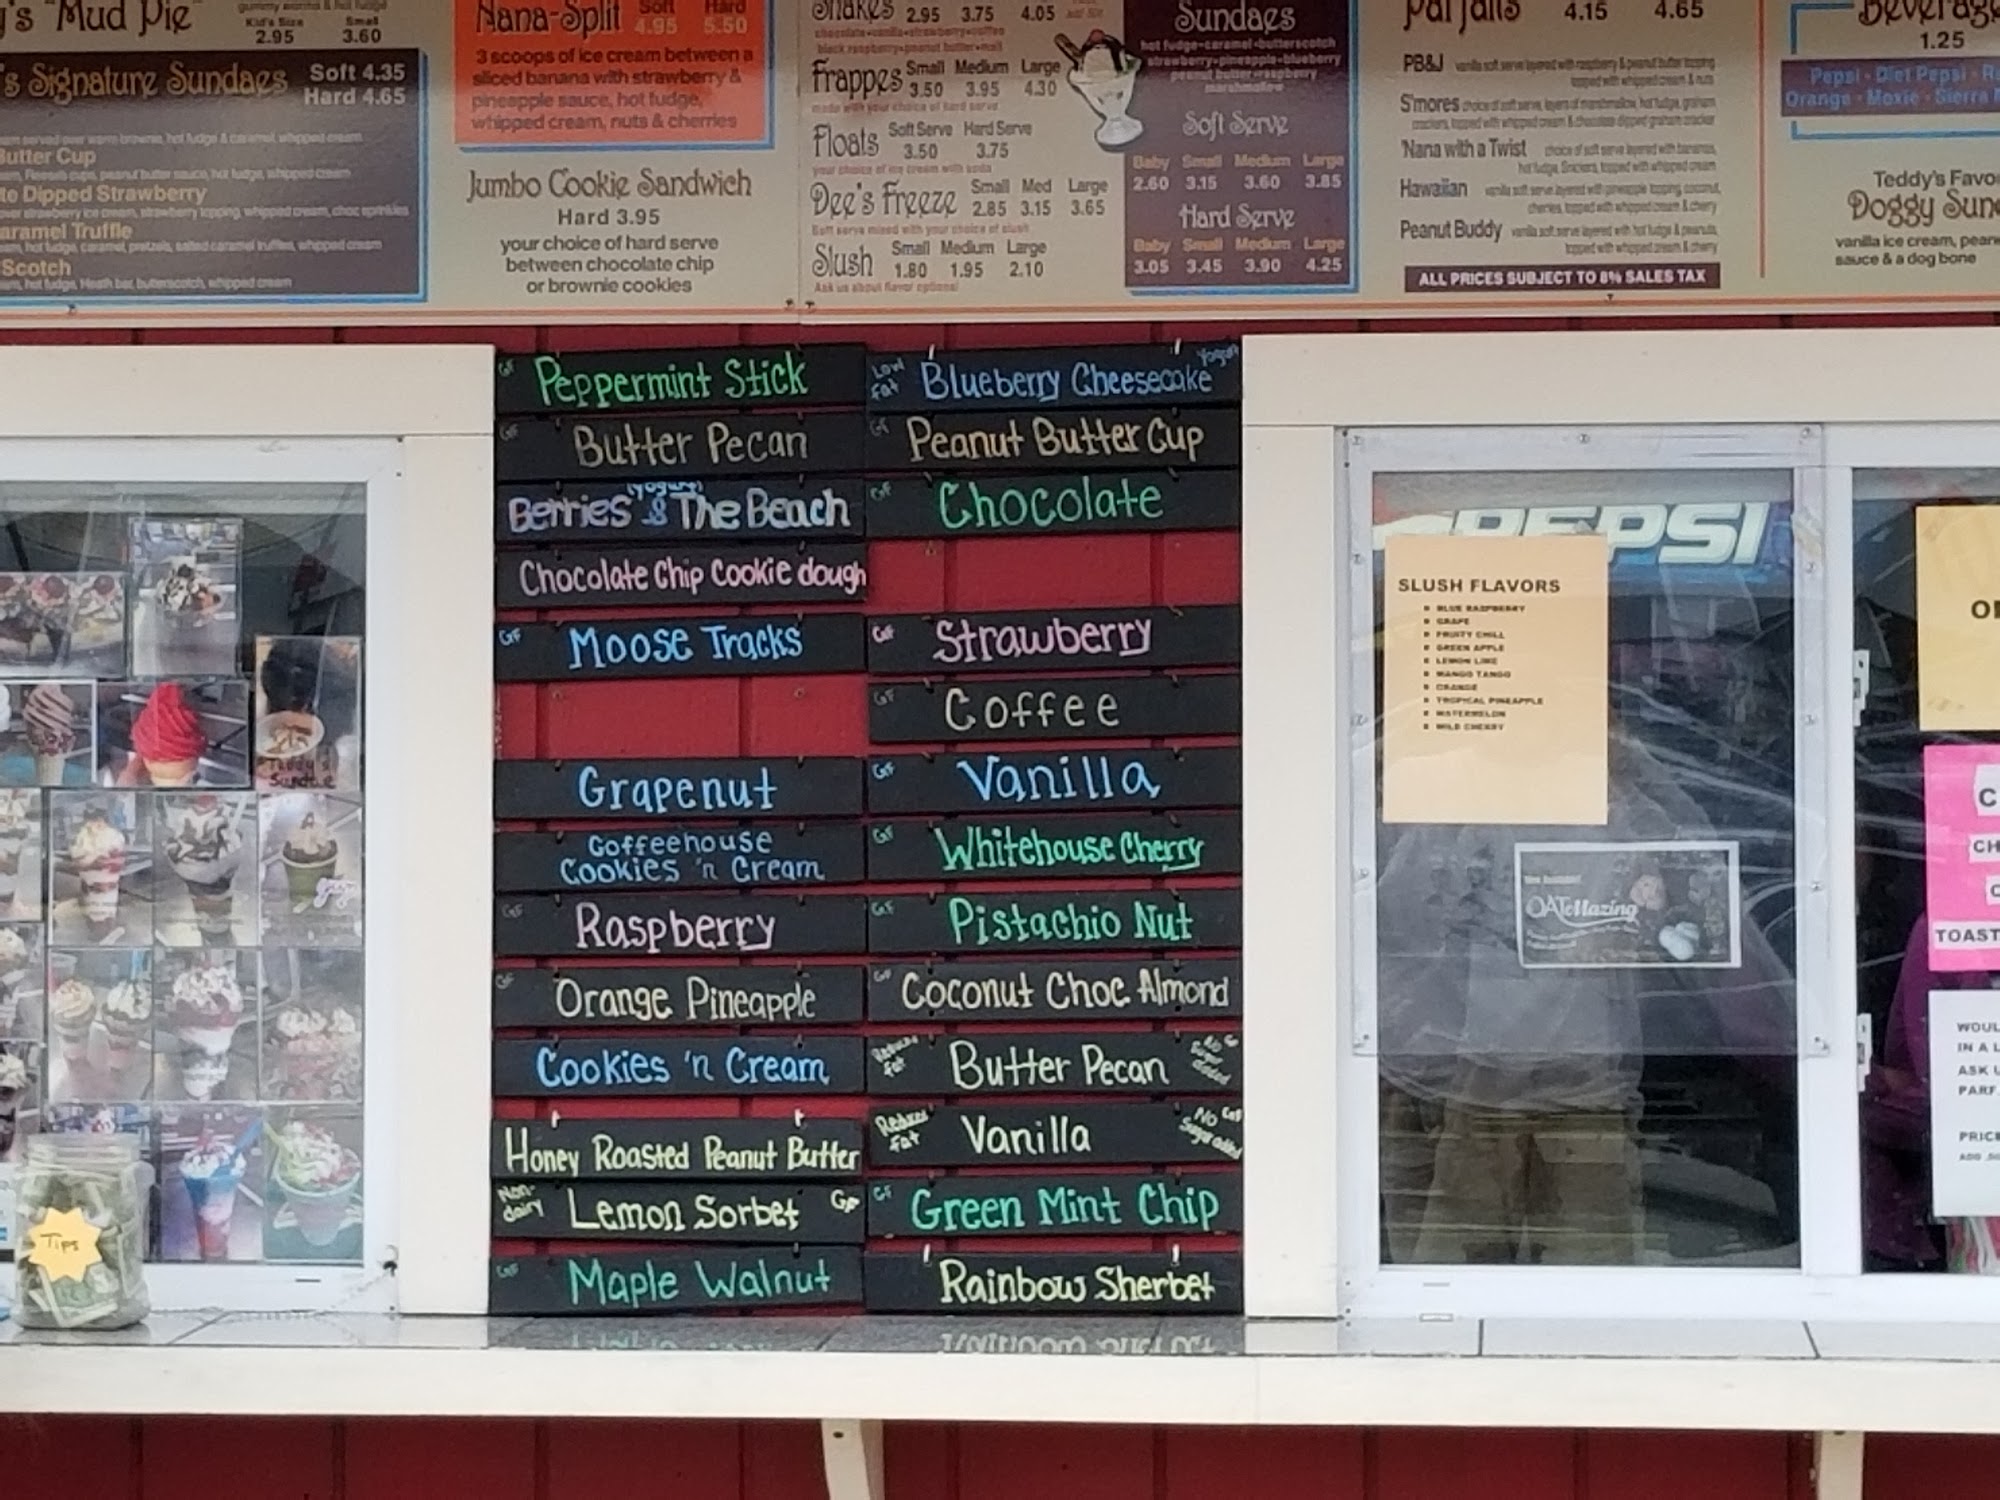 's "Mud Pie"
Kid's Size Small
2.95 3.60
's Signature Sundaes Soft 4.35
Hard 4.65
Butter Cup
te Dipped Strawberry
aramel Truffle
Scotch
Nana-Split Soft Hard
4.95 5.50
3 scoops of ice cream between a
sliced banana with strawberry &
pineapple sauce, hot fudge,
whipped cream, nuts & cherries
Jumbo Cookie Sandwich
Hard 3.95
your choice of hard serve
between chocolate chip
or brownie cookies
Shakes 2.95 3.75 4.05
chocolate-vanilla-strawberry-coffee
black raspberry-peanut butter-malt
Frappes Small Medium Large
3.50 3.95 4.30
made with your choice of hard serve
Floats Soft Serve Hard Serve
3.50 3.75
your choice of ice cream with soda
Dee's Freeze Small Med Large
2.85 3.15 3.65
Soft serve mixed with your choice of slush
Slush Small Medium Large
1.80 1.95 2.10
Ask us about flavor options!
Sundaes
hot fudge-caramel-butterscotch
strawberry-pineapple-blueberry
peanut butter-raspberry
marshmallow
Soft Serve
Baby Small Medium Large
2.60 3.15 3.60 3.85
Hard Serve
Baby Small Medium Large
3.05 3.45 3.90 4.25
Parfaits 4.15 4.65
PB&J vanilla soft serve layered with raspberry & peanut butter topping
topped with whipped cream & nuts
S'mores choice of soft serve, layers of marshmallow, hot fudge, graham
crackers, topped with whipped cream & chocolate dipped graham cracker
'Nana with a Twist choice of soft serve layered with bananas,
hot fudge, Snickers, topped with whipped cream
Hawaiian vanilla soft serve layered with pineapple topping, coconut,
cherries, topped with whipped cream & cherry
Peanut Buddy vanilla soft serve layered with hot fudge & peanuts,
topped with whipped cream & cherry
ALL PRICES SUBJECT TO 8% SALES TAX
Beverag
1.25
Pepsi - Diet Pepsi - R
Orange - Moxie - Sierra
Teddy's Favo
Doggy Sun
vanilla ice cream, pean
sauce & a dog bone
GF Peppermint Stick
GF Butter Pecan
(Yogurt)
Berries & The Beach
Chocolate Chip Cookie dough
GF Moose Tracks
Grapenut
Coffeehouse
Cookies 'n Cream
GF Raspberry
GF Orange Pineapple
Cookies 'n Cream
Honey Roasted Peanut Butter
Non-dairy Lemon Sorbet GF
GF Maple Walnut
Low Fat Blueberry Cheesecake Yogurt
GF Peanut Butter Cup
GF Chocolate
GF Strawberry
GF Coffee
GF Vanilla
GF Whitehouse Cherry
GF Pistachio Nut
GF Coconut Choc Almond
Reduced Fat Butter Pecan No Sugar added
Reduced Fat Vanilla No Sugar added GF
GF Green Mint Chip
Rainbow Sherbet
PEPSI
SLUSH FLAVORS
BLUE RASPBERRY
GRAPE
FRUITY CHILL
GREEN APPLE
LEMON LIME
MANGO TANGO
ORANGE
TROPICAL PINEAPPLE
WATERMELON
WILD CHERRY
OATeMazing
Teddy's
Sundae
Tips
C
CH
C
TOAST
WOUL
IN A L
ASK U
PARF
PRICE